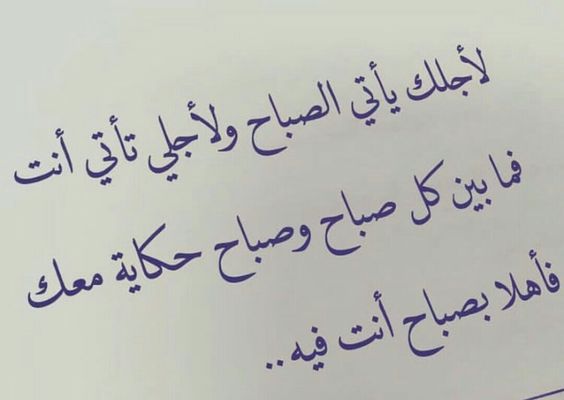 لأجلك يأتي الصباح ولأجلي تأتي أنت
فما بين كل صباح وصباح حكاية معك
فأهلا بصباح أنت فيه..